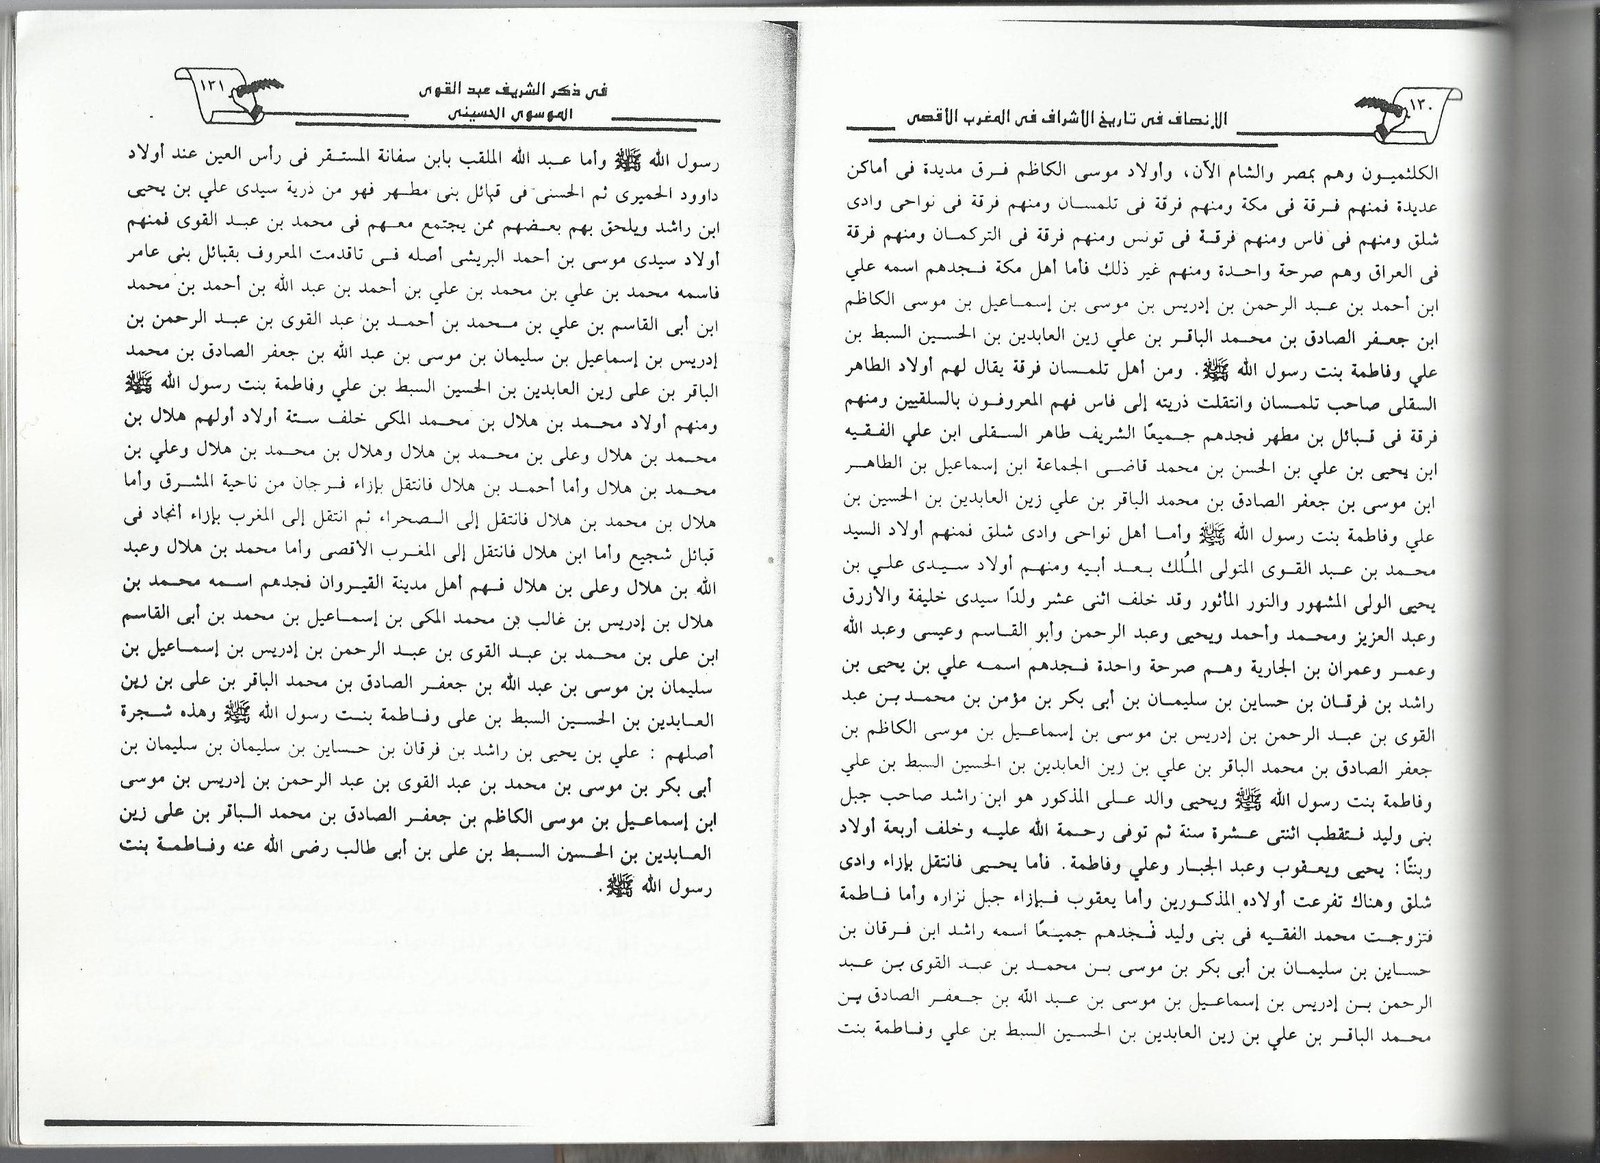 ١٣٠
الإنصاف فى تاريخ الأشراف فى المغرب الأقصى
الكلثميون وهم بمصر والشام الآن، وأولاد موسى الكاظم فرق مديدة فى أماكن
عديدة فمنهم فرقة فى مكة ومنهم فرقة فى تلمسان ومنهم فرقة فى نواحى وادى
شلق ومنهم فى فاس ومنهم فرقة فى تونس ومنهم فرقة فى التركمان ومنهم فرقة
فى العراق وهم صرحة واحدة ومنهم غير ذلك فأما أهل مكة فجدهم اسمه علي
ابن أحمد بن عبد الرحمن بن إدريس بن موسى بن إسماعيل بن موسى الكاظم
ابن جعفر الصادق بن محمد الباقر بن علي زين العابدين بن الحسين السبط بن
علي وفاطمة بنت رسول الله ﷺ. ومن أهل تلمسان فرقة يقال لهم أولاد الطاهر
السقلى صاحب تلمسان وانتقلت ذريته إلى فاس فهم المعروفون بالسلقيين ومنهم
فرقة فى قبائل بن مطهر فجدهم جميعًا الشريف طاهر السقلى ابن علي الفقيه
ابن يحيى بن علي بن الحسن بن محمد قاضى الجماعة ابن إسماعيل بن الطاهر
ابن موسى بن جعفر الصادق بن محمد الباقر بن علي زين العابدين بن الحسين بن
علي وفاطمة بنت رسول الله ﷺ وأما أهل نواحى وادى شلق فمنهم أولاد السيد
محمد بن عبد القوى المتولى المُلك بعد أبيه ومنهم أولاد سيدى علي بن
يحيى الولى المشهور والنور المأثور وقد خلف اثنى عشر ولدًا سيدى خليفة والأزرق
وعبد العزيز ومحمد وأحمد ويحيى وعبد الرحمن وأبو القاسم وعيسى وعبد الله
وعمر وعمران بن الجارية وهم صرحة واحدة فجدهم اسمه علي بن يحيى بن
راشد بن فرقان بن حساين بن سليمان بن أبى بكر بن مؤمن بن محمد بن عبد
القوى بن عبد الرحمن بن إدريس بن موسى بن إسماعيل بن موسى الكاظم بن
جعفر الصادق بن محمد الباقر بن علي بن زين العابدين بن الحسين السبط بن علي
وفاطمة بنت رسول الله ﷺ ويحيى والد على المذكور هو ابن راشد صاحب جبل
بنى وليد فتقطب اثنتى عشرة سنة ثم توفى رحمة الله عليه وخلف أربعة أولاد
وبنتًا: يحيى ويعقوب وعبد الجبار وعلي وفاطمة. فأما يحيى فانتقل بإزاء وادى
شلق وهناك تفرعت أولاده المذكورين وأما يعقوب فبإزاء جبل نزاره وأما فاطمة
فتزوجت محمد الفقيه فى بنى وليد فجدهم جميعًا اسمه راشد ابن فرقان بن
حساين بن سليمان بن أبى بكر بن موسى بن محمد بن عبد القوى بن عبد
الرحمن بن إدريس بن إسماعيل بن موسى بن عبد الله بن جعفر الصادق بن
محمد الباقر بن علي بن زين العابدين بن الحسين السبط بن علي وفاطمة بنت
١٣١
فى ذكر الشريف عبد القوى
الموسوى الحسينى
رسول الله ﷺ وأما عبد الله الملقب بابن سفانة المستقر فى رأس العين عند أولاد
داوود الحميرى ثم الحسنى فى قبائل بنى مطهر فهو من ذرية سيدى علي بن يحيى
ابن راشد ويلحق بهم بعضهم ممن يجتمع معهم فى محمد بن عبد القوى فمنهم
أولاد سيدى موسى بن أحمد البريشى أصله فى تاقدمت المعروف بقبائل بنى عامر
فاسمه محمد بن علي بن محمد بن علي بن أحمد بن عبد الله بن أحمد بن محمد
ابن أبى القاسم بن علي بن محمد بن أحمد بن عبد القوى بن عبد الرحمن بن
إدريس بن إسماعيل بن سليمان بن موسى بن عبد الله بن جعفر الصادق بن محمد
الباقر بن على زين العابدين بن الحسين السبط بن علي وفاطمة بنت رسول الله ﷺ
ومنهم أولاد محمد بن هلال بن محمد المكى خلف ستة أولاد أولهم هلال بن
محمد بن هلال وعلى بن محمد بن هلال وهلال بن محمد بن هلال وعلي بن
محمد بن هلال وأما أحمد بن هلال فانتقل بإزاء فرجان من ناحية المشرق وأما
هلال بن محمد بن هلال فانتقل إلى الصحراء ثم انتقل إلى المغرب بإزاء أنجاد فى
قبائل شجيع وأما ابن هلال فانتقل إلى المغرب الأقصى وأما محمد بن هلال وعبد
الله بن هلال وعلى بن هلال فهم أهل مدينة القيروان فجدهم اسمه محمد بن
هلال بن إدريس بن غالب بن محمد المكى بن إسماعيل بن محمد بن أبى القاسم
ابن على بن محمد بن عبد القوى بن عبد الرحمن بن إدريس بن إسماعيل بن
سليمان بن موسى بن عبد الله بن جعفر الصادق بن محمد الباقر بن على بن زين
العابدين بن الحسين السبط بن على وفاطمة بنت رسول الله ﷺ وهذه شجرة
أصلهم : علي بن يحيى بن راشد بن فرقان بن حساين بن سليمان بن سليمان بن
أبى بكر بن موسى بن محمد بن عبد القوى بن عبد الرحمن بن إدريس بن موسى
ابن إسماعيل بن موسى الكاظم بن جعفر الصادق بن محمد الباقر بن على زين
العابدين بن الحسين السبط بن على بن أبى طالب رضى الله عنه وفاطمة بنت
رسول الله ﷺ.